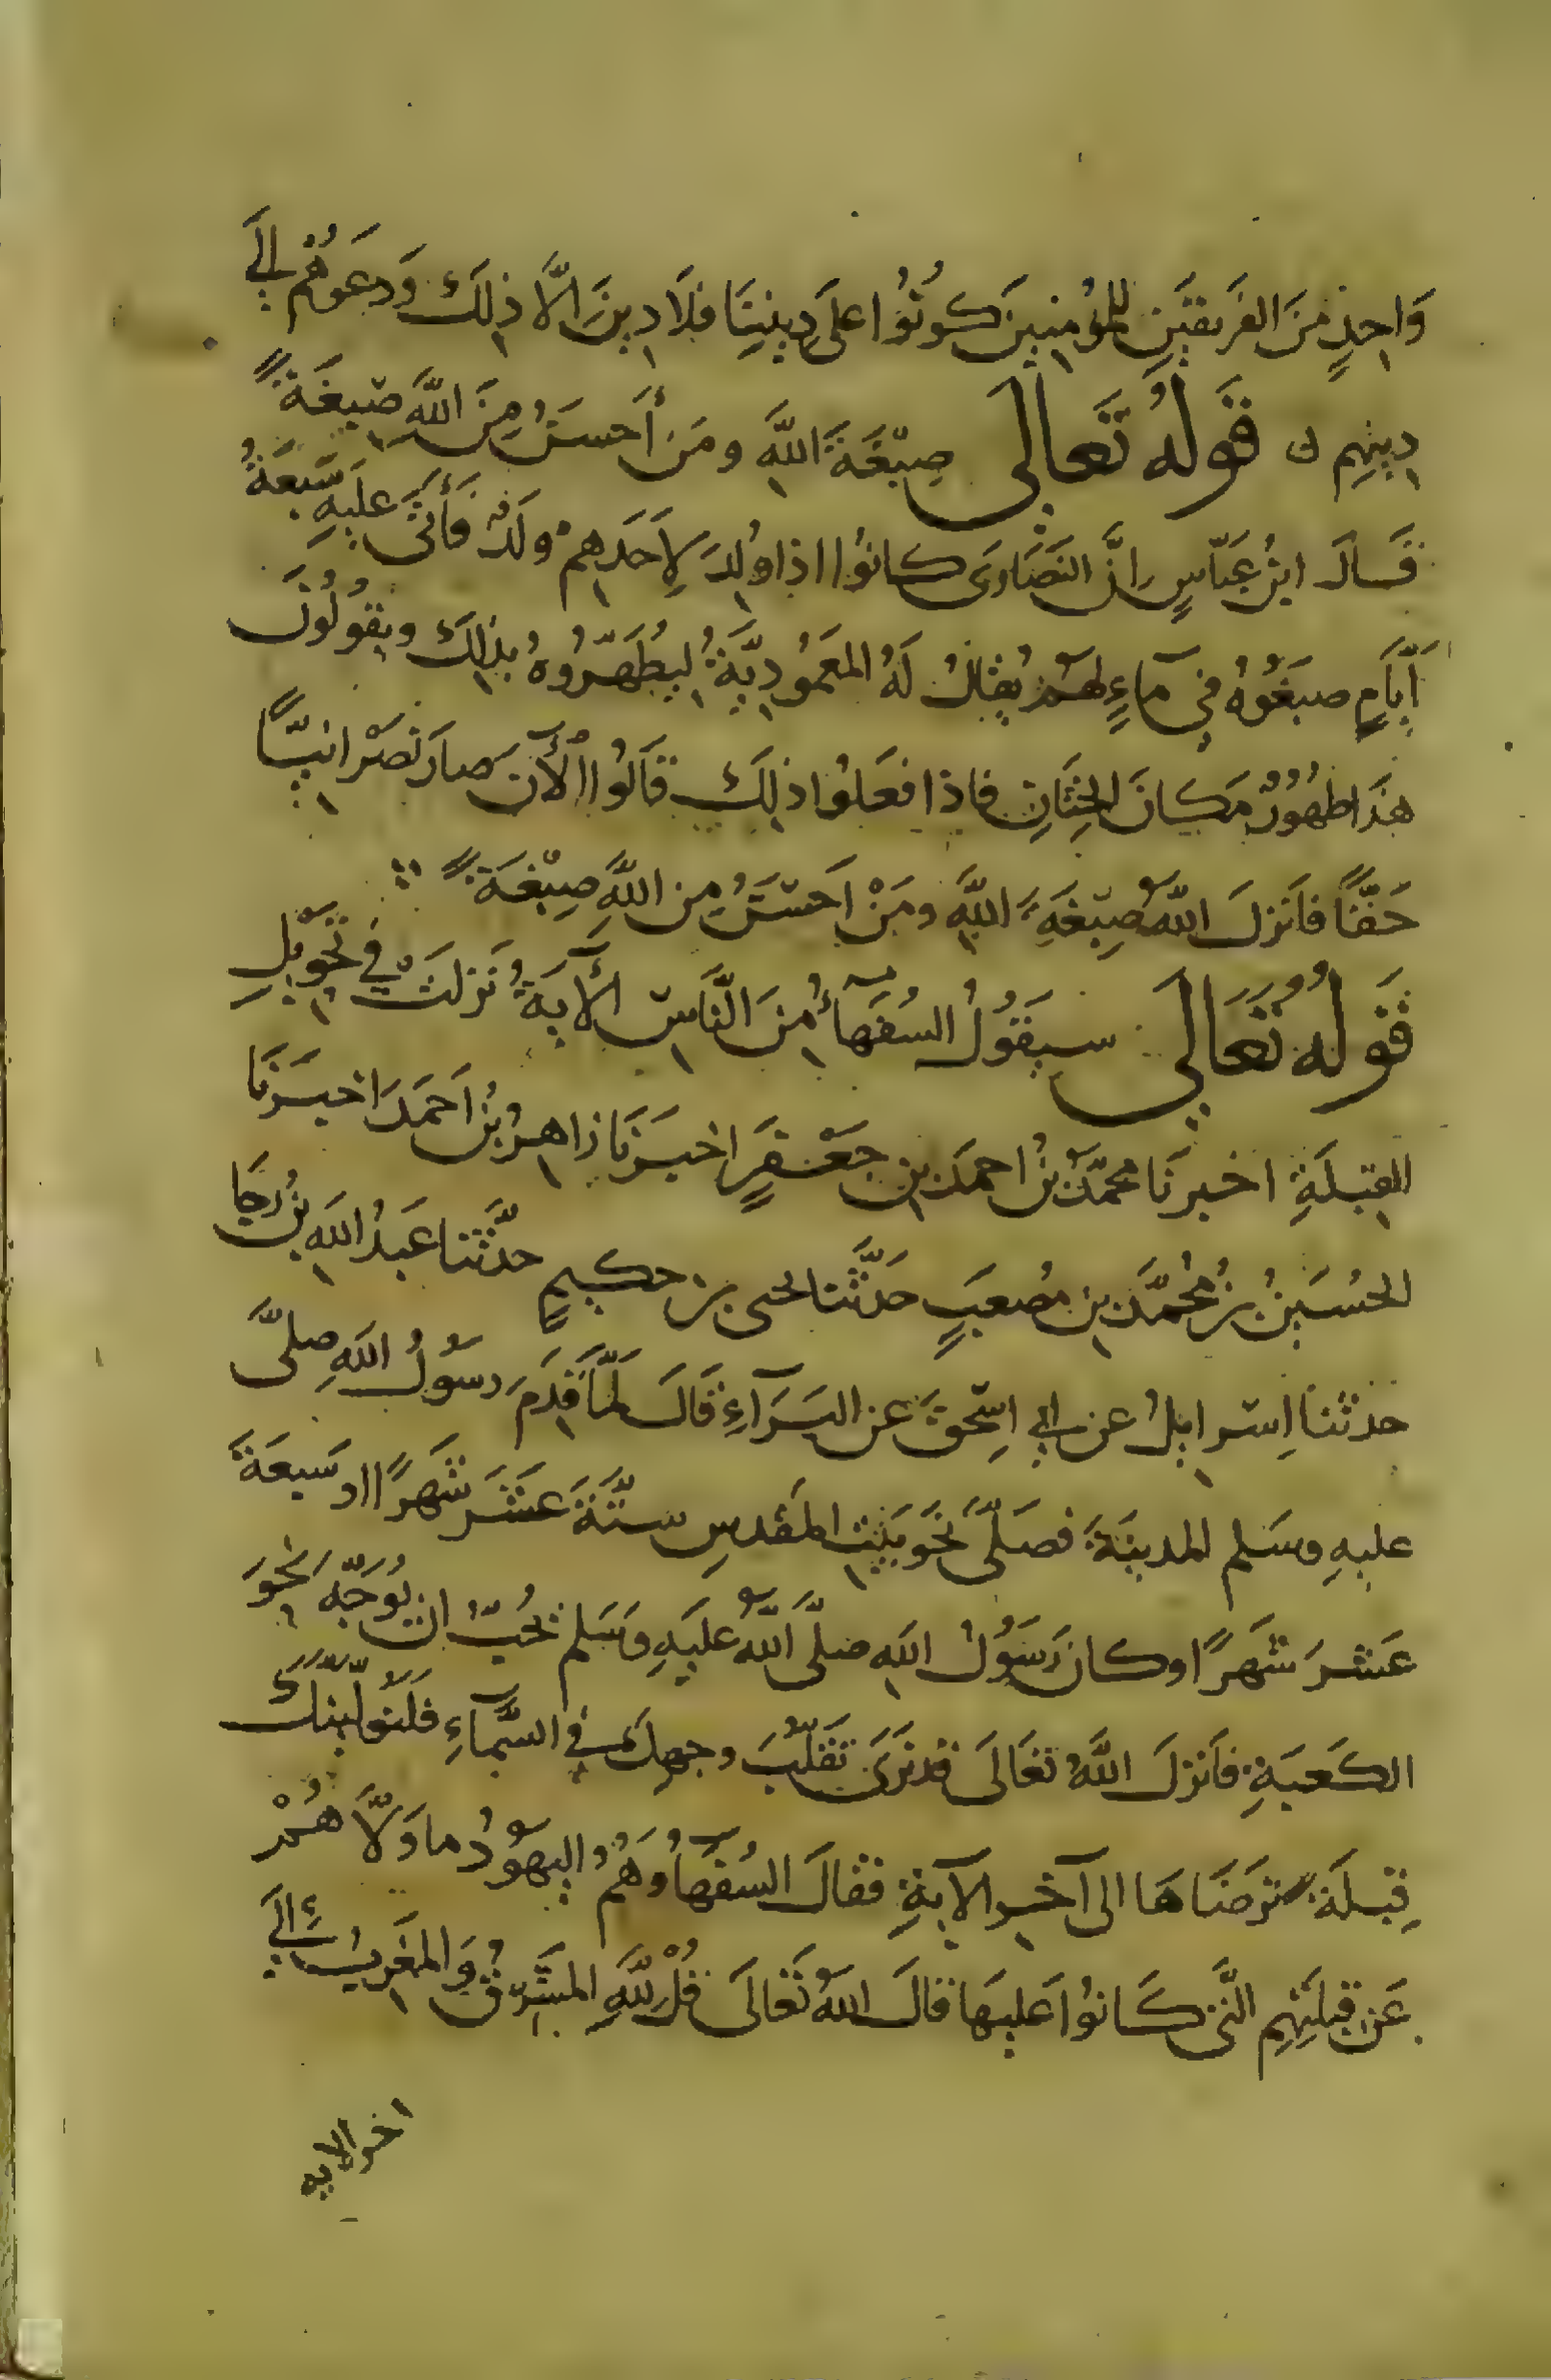 وَاحِدٍ مِنَ الفَرِيقَينِ لِلمُؤمِنِينَ كُونُوا عَلَى دِينِنَا فَلَا دِينَ اِلَّا ذلِكَ وَدَعَوهُمْ اِلَى
دِينِهِم قَولُهُ تَعَالَى صِبْغَةَ اللَّهِ وَمَن أَحسَنُ مِنَ اللَّهِ صِبغَةً
قَالَ ابنُ عَبَّاسٍ اِنَّ النَصَارَى كَانُوا اذا وُلِدَ لِاَحَدِهِمْ وَلَدٌ فَأَتَى عَلَيهِ سَبعَةُ
أَيَّامٍ صبَغُوهُ في مآءٍ لهُم يُقَالُ لَهُ المَعمُودِيَّةُ لِيُطَهِّرُوهُ بذلِكَ ويقُولُونَ
هَذَا طهُورٌ مَكَانَ الخِتَانِ فاذا فعَلُوا ذلِكَ قَالُوا اْلآنَ صارَ نَصْرَانيًّا
حَقًّا فأَنزلَ اللَّهُ صِبْغةَ اللَّهِ ومَنْ اَحسَنُ مِن اللَّهِ صِبْغَةً
قَولُهُ تَعَالَى سيَقُولُ السُفَهَآءُ مِنَ النَّاسِ الآيَةُ نَزلَتْ فِي تَحْوِيلِ
القِبلَةِ اخبرنَا محمَّدُ بنُ احمدَ بنِ جَعْفَرٍ اخبَرَنَا زاهِرُ بنُ اَحمَدَ اخبَرَنَا
الحُسَينُ بنُ مُحمَّدِ بنِ مُصعَبٍ حَدَّثنا يحيى بن حكيمٍ حدَّثنا عَبدُ اللَّهِ بنُ رجَا
حدثنا اِسرايلُ عن ابي اِسحقَ عن البَرَآءِ قَالَ لَمَّا قَدِمَ رسُولُ اللهِ صلَّى
عليهِ وسَلم المدينَةَ فصَلَّى نَحوَ بَيتِ المَقدِسِ ستَّةَ عَشَرَ شَهرًا او سَبعَةَ
عَشرَ شَهرًا وكانَ رَسُولُ اللهِ صلَّى اللَّهُ عَليَهِ وَسَلم يُحبُّ ان يُوَجَّهَ نَحْوَ
الكَعبَةِ فأَنزلَ اللَّهُ تعَالَى قد نَرَى تَقَلُّبَ وجهِكَ في السَّمآءِ فلَنُوَلِّيَنَّكَ
قِبلَةً تَرضَاهَا الى آخِرِ الآيةِ فقَالَ السُفَهآُ وَهُمُ اليهُودُ ما وَلَّاهُمْ
عَن قِبلَتِهِم الَّتي كَانُوا عَليهَا قالَ اللهُ تَعَالَى قُلْ لِلَّهِ المَشرِقُ وَالمَغرِبُ اِلَى
اخر الايه